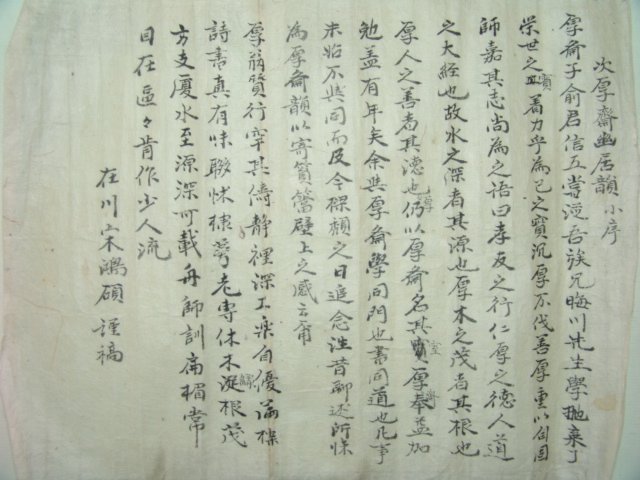 次厚齋幽居韻 小序
厚齋子俞君信五嘗從吾族兄晦川先生學抛棄了
榮世之具着力乎爲己之實沉厚不伐善厚重以自固
師嘉其志尚爲之語曰孝友之行仁厚之德人道
之大經也故水之深者其源也厚木之茂者其根也
厚人之善者其德也厚仍以厚齋名其室厚齋奉益加
勉盖有年矣余與厚齋學同門也書同道也凡事
未始不與同而及今稀顏之日追念往昔聊述所懷
爲厚齋韻以寄篔簹壁上之感云甭
厚翁質行罕其儔靜裡深工樂自優論操
詩書眞有味聯牀棣萼老專休木凝根茂
方支厦水至源深可載舟師訓扁楣常
目在區々肯作少人流
在川 宋鴻碩 謹稿